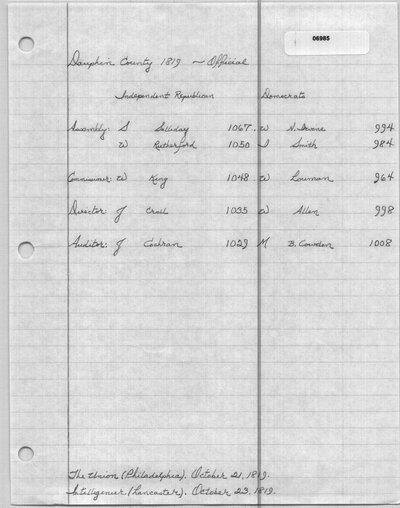 06985
Dauphin County 1819 ~ Official
Independent Republican Democrats
Assembly: S Salliday 1067. W N. Irvine 994
W Rutherford 1050 J Smith 984
Commissioner: W King 1048. W Louman 964
Director: J Crall 1035 W Allen 998
Auditor: J Cochran 1029 M B. Cowden 1008
The Union (Philadelphia). October 21, 1819.
Intelligencer (Lancaster). October 23, 1819.